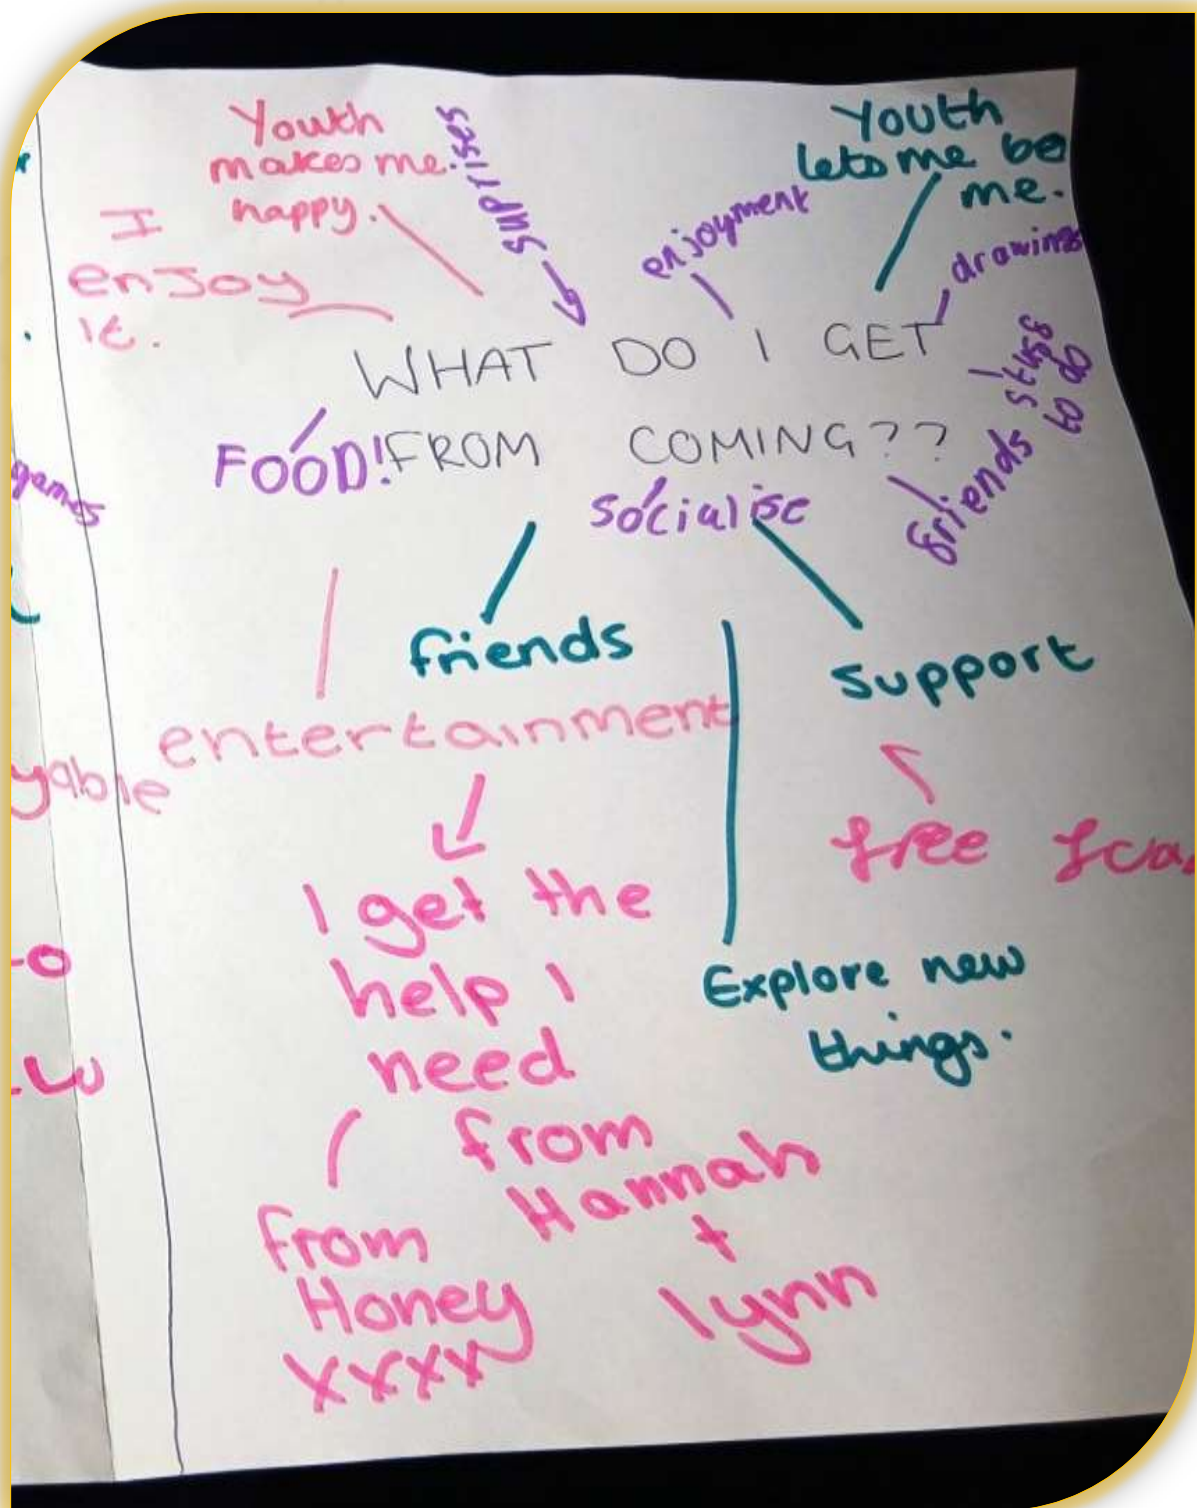 Youth
makes me
happy.
suprises
I
enjoy
it.
enjoyment
Youth
lets me be
me.
drawings
WHAT DO I GET
FROM COMING??
FOOD!
socialise
friends
games
friends
support
entertainment
yable
free
I get the
help I
need
from
Hannah
+
lynn
Explore new
things.
from
Honey
xxxx